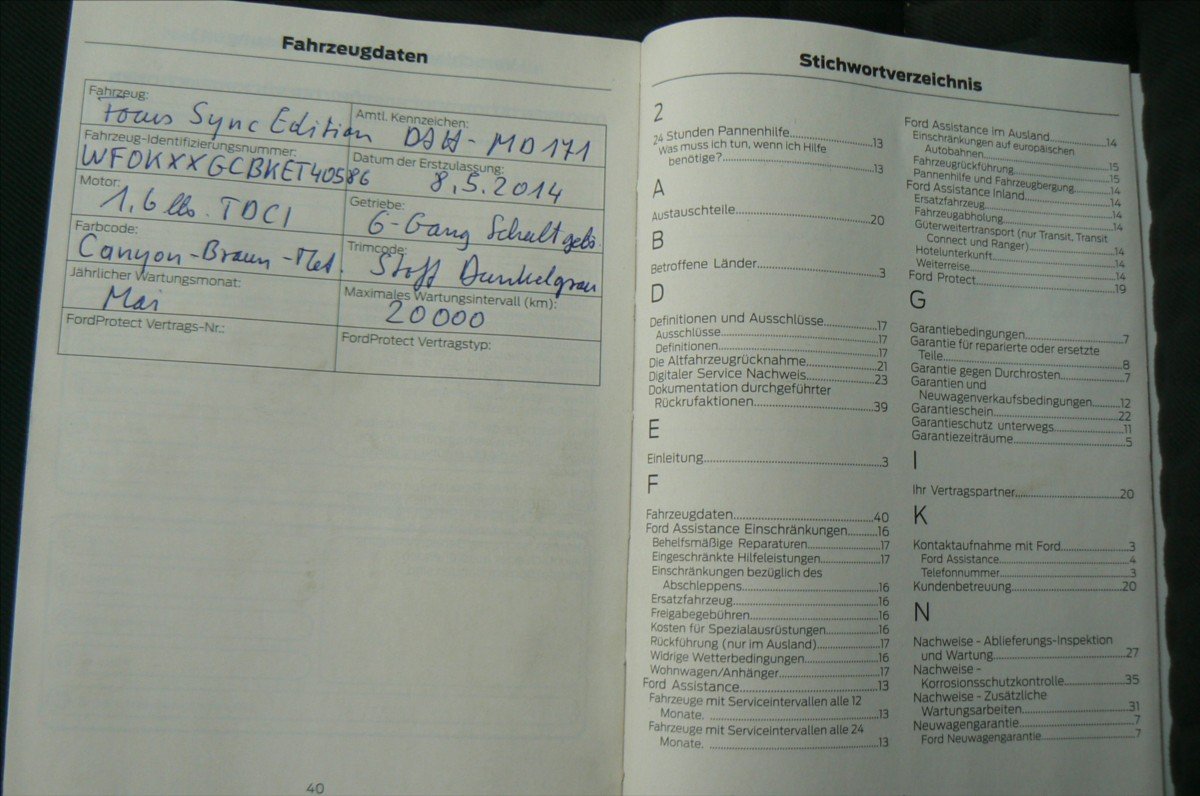 Fahrzeugdaten
Fahrzeug:
Focus Sync Edition
Amtl. Kennzeichen:
DAH-MD171
Fahrzeug-Identifizierungsnummer:
WF0KXXGCBKET40586
Datum der Erstzulassung:
8.5.2014
Motor:
1,6 ltr. TDCI
Getriebe:
6-Gang Schaltgetr.
Farbcode:
Canyon-Braun-Met.
Trimcode:
Stoff Dunkelgrau
Jährlicher Wartungsmonat:
Mai
Maximales Wartungsintervall (km):
20000
FordProtect Vertrags-Nr.:
FordProtect Vertragstyp:
40
Stichwortverzeichnis
2
24 Stunden Pannenhilfe.....13
Was muss ich tun, wenn ich Hilfe
benötige?.....13
A
Austauschteile.....20
B
Betroffene Länder.....3
D
Definitionen und Ausschlüsse.....17
Ausschlüsse.....17
Definitionen.....17
Die Altfahrzeugrücknahme.....21
Digitaler Service Nachweis.....23
Dokumentation durchgeführter
Rückrufaktionen.....39
E
Einleitung.....3
F
Fahrzeugdaten.....40
Ford Assistance Einschränkungen.....16
Behelfsmäßige Reparaturen.....17
Eingeschränkte Hilfeleistungen.....17
Einschränkungen bezüglich des
Abschleppens.....16
Ersatzfahrzeug.....16
Freigabegebühren.....16
Kosten für Spezialausrüstungen.....16
Rückführung (nur im Ausland).....17
Widrige Wetterbedingungen.....16
Wohnwagen/Anhänger.....17
Ford Assistance.....13
Fahrzeuge mit Serviceintervallen alle 12
Monate. .....13
Fahrzeuge mit Serviceintervallen alle 24
Monate. .....13
Ford Assistance im Ausland.....14
Einschränkungen auf europäischen
Autobahnen.....15
Fahrzeugrückführung.....15
Pannenhilfe und Fahrzeugbergung.....14
Ford Assistance Inland.....14
Ersatzfahrzeug.....14
Fahrzeugabholung.....14
Güterweitertransport (nur Transit, Transit
Connect und Ranger).....14
Hotelunterkunft.....14
Weiterreise.....14
Ford Protect.....19
G
Garantiebedingungen.....7
Garantie für reparierte oder ersetzte
Teile.....8
Garantie gegen Durchrosten.....7
Garantien und
Neuwagenverkaufsbedingungen.....12
Garantieschein.....22
Garantieschutz unterwegs.....11
Garantiezeiträume.....5
I
Ihr Vertragspartner.....20
K
Kontaktaufnahme mit Ford.....3
Ford Assistance.....4
Telefonnummer.....3
Kundenbetreuung.....20
N
Nachweise - Ablieferungs-Inspektion
und Wartung.....27
Nachweise -
Korrosionsschutzkontrolle.....35
Nachweise - Zusätzliche
Wartungsarbeiten.....31
Neuwagengarantie.....7
Ford Neuwagengarantie.....7